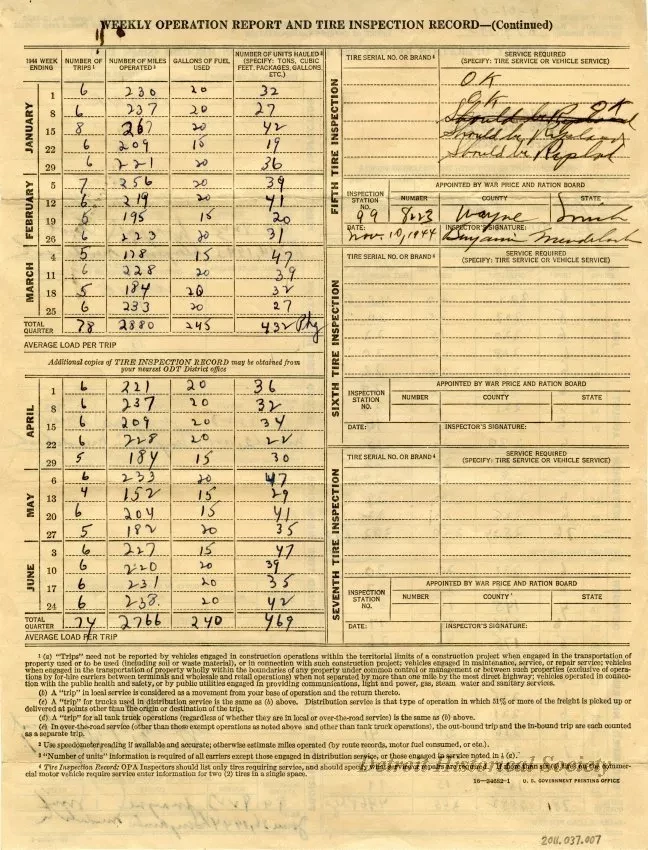 WEEKLY OPERATION REPORT AND TIRE INSPECTION RECORD—(Continued)
1944 WEEK ENDING NUMBER OF TRIPS¹ NUMBER OF MILES OPERATED² GALLONS OF FUEL USED NUMBER OF UNITS HAULED³ (SPECIFY: TONS, CUBIC FEET, PACKAGES, GALLONS, ETC.)
JANUARY
1 6 230 20 32
8 6 237 20 27
15 8 267 20 42
22 6 209 15 19
29 6 221 20 36
FEBRUARY
5 7 256 20 39
12 6 219 20 41
19 5 195 15 20
26 6 223 20 31
MARCH
4 5 178 15 47
11 6 228 20 39
18 5 184 20 32
25 6 233 20 27
TOTAL QUARTER 78 2880 245 432 Pkg
AVERAGE LOAD PER TRIP
Additional copies of TIRE INSPECTION RECORD may be obtained from
your nearest ODT District office
APRIL
1 6 221 20 36
8 6 237 20 32
15 6 209 20 34
22 6 228 20 22
29 5 184 15 30
MAY
6 6 233 20 47
13 4 152 15 29
20 6 204 15 41
27 5 182 20 35
JUNE
3 6 227 15 47
10 6 220 20 39
17 6 231 20 35
24 6 238 20 42
TOTAL QUARTER 74 2766 240 469
AVERAGE LOAD PER TRIP
FIFTH TIRE INSPECTION
TIRE SERIAL NO. OR BRAND⁴ SERVICE REQUIRED
(SPECIFY: TIRE SERVICE OR VEHICLE SERVICE)
OK
OK
Should be OK
Should be
Should be
APPOINTED BY WAR PRICE AND RATION BOARD
INSPECTION STATION NO. NUMBER COUNTY STATE
99 8223 Wayne
DATE: INSPECTOR'S SIGNATURE:
Nov. 10, 1944 Benjamin
SIXTH TIRE INSPECTION
TIRE SERIAL NO. OR BRAND⁴ SERVICE REQUIRED
(SPECIFY: TIRE SERVICE OR VEHICLE SERVICE)
APPOINTED BY WAR PRICE AND RATION BOARD
INSPECTION STATION NO. NUMBER COUNTY STATE
DATE: INSPECTOR'S SIGNATURE:
SEVENTH TIRE INSPECTION
TIRE SERIAL NO. OR BRAND⁴ SERVICE REQUIRED
(SPECIFY: TIRE SERVICE OR VEHICLE SERVICE)
APPOINTED BY WAR PRICE AND RATION BOARD
INSPECTION STATION NO. NUMBER COUNTY STATE
DATE: INSPECTOR'S SIGNATURE:
¹ (a) "Trips" need not be reported by vehicles engaged in construction operations within the territorial limits of a construction project when engaged in the transportation of
property used or to be used (including soil or waste material), or in connection with such construction project; vehicles engaged in maintenance, service, or repair service; vehicles
when engaged in the transportation of property wholly within the boundaries of any property under common control or management or between such properties (exclusive of opera-
tions by for-hire carriers between terminals and wholesale and retail operations) when not separated by more than one mile by the most direct highway; vehicles operated in connec-
tion with the public health and safety, or by public utilities engaged in providing communications, light and power, gas, steam water and sanitary services.
(b) A "trip" in local service is considered as a movement from your base of operation and the return thereto.
(c) A "trip" for trucks used in distribution service is the same as (b) above. Distribution service is that type of operation in which 51% or more of the freight is picked up or
delivered at points other than the origin or destination of the trip.
(d) A "trip" for all tank truck operations (regardless of whether they are in local or over-the-road service) is the same as (b) above.
(e) In over-the-road service (other than those exempt operations as noted above and other than tank truck operations), the out-bound trip and the in-bound trip are each counted
as a separate trip.
² Use speedometer reading if available and accurate; otherwise estimate miles operated (by route records, motor fuel consumed, or etc.).
³ "Number of units" information is required of all carriers except those engaged in distribution service, or those engaged in service noted in ¹ (a).
⁴ Tire Inspection Record: OPA Inspectors should list only tires requiring service, and should
cial motor vehicle require service enter information for two (2) tires in a single space.
Detroit Historical Society
16—34652-1 U. S. GOVERNMENT PRINTING OFFICE
2011.037.007